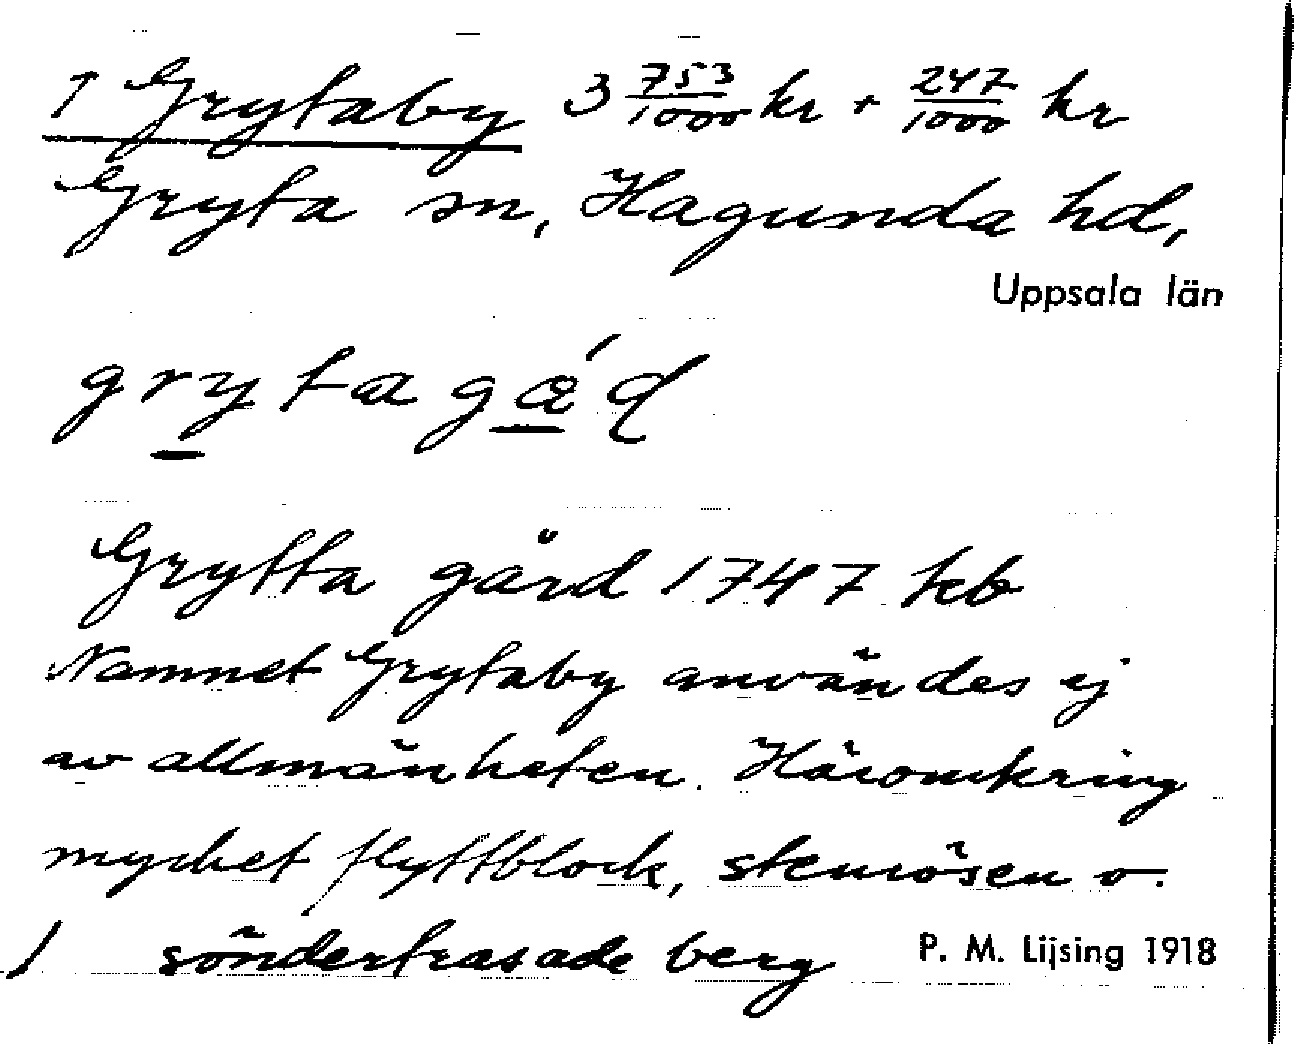 ↑ Grytaby 3 753/1000 kr + 247/1000 kr
Gryta sn, Hagunda hd,
Uppsala län
grytagǽɖ
Grytta gård 1747 kb
Namnet Grytaby användes ej
av allmänheten. Häromkring
mycket flyttblock, stenrösen o.
/ söndertrasade berg P. M. Lijsing 1918